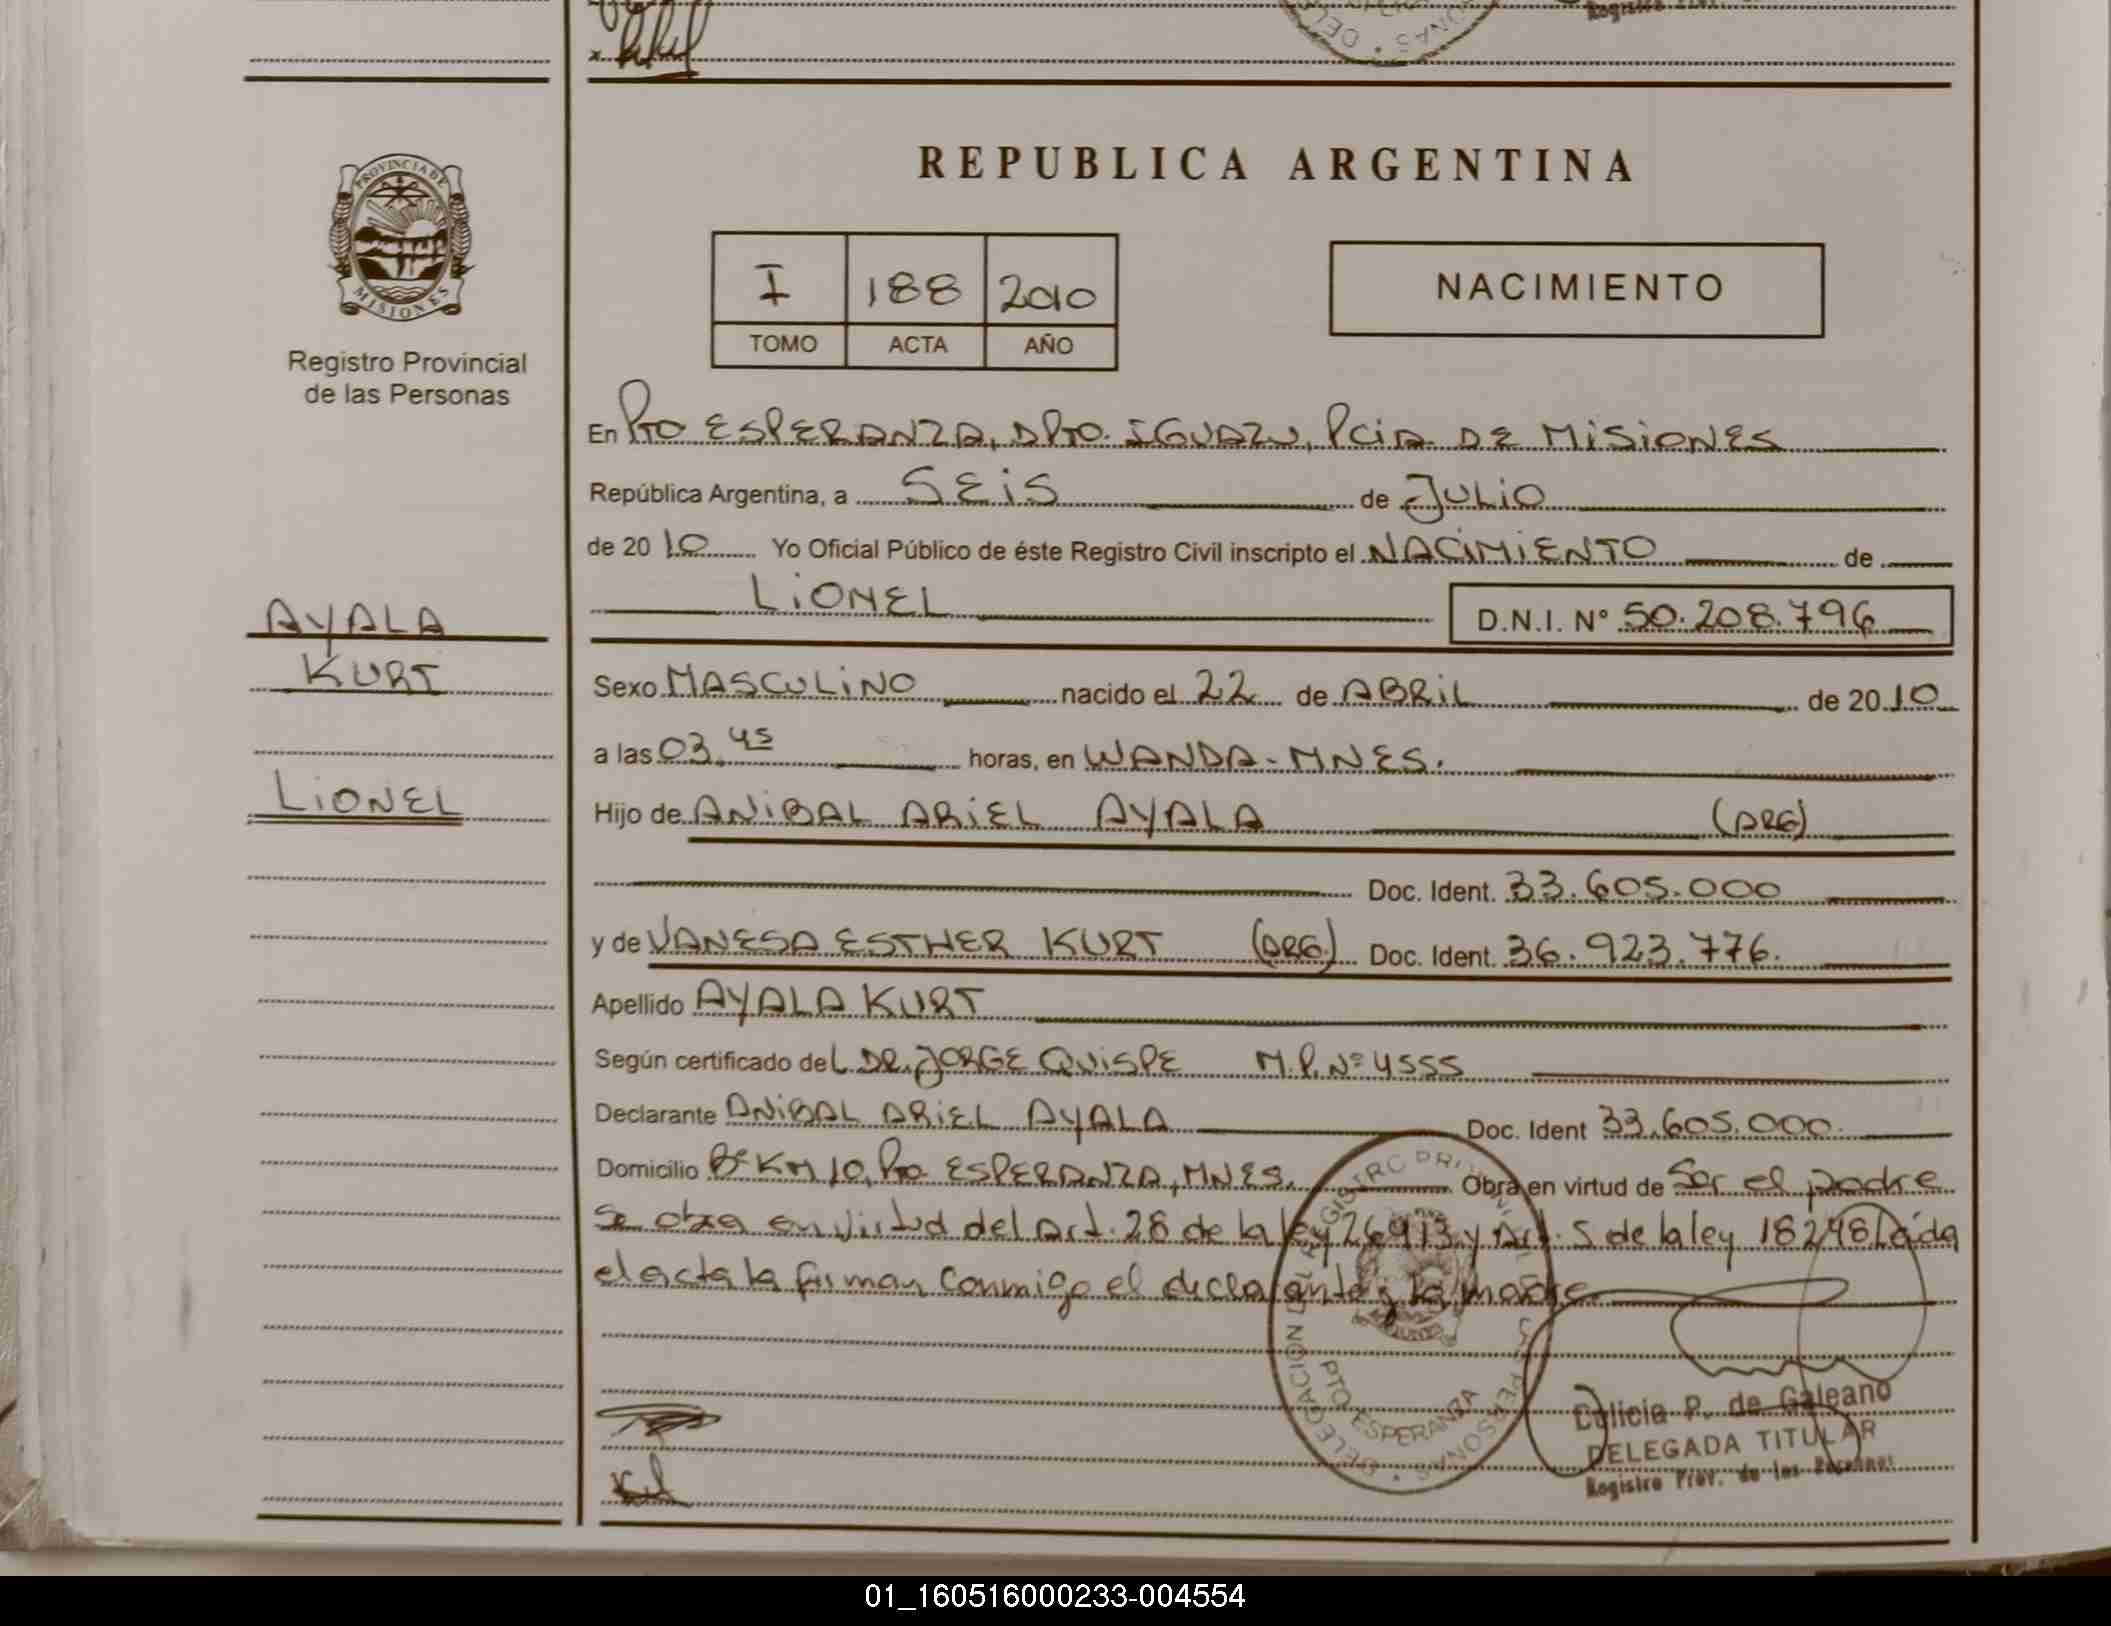 REPUBLICA ARGENTINA
PROVINCIA DE
MISIONES
Registro Provincial
de las Personas
I 188 2010
TOMO ACTA AÑO
NACIMIENTO
En Pto ESPERANZA, DPTO. IGUAZU, PCIA DE MISIONES
República Argentina, a SEIS de JULIO
de 2010 Yo Oficial Público de éste Registro Civil inscripto el NACIMIENTO de
LIONEL
D.N.I. Nº 50.208.796
AYALA
KURT
LIONEL
Sexo MASCULINO nacido el 22 de ABRIL de 2010
a las 03,45 horas, en WANDA-MNES.
Hijo de ANIBAL ARIEL AYALA (ARG)
Doc. Ident. 33.605.000
y de VANESA ESTHER KURT (ARG.) Doc. Ident. 36.923.776.
Apellido AYALA KURT
Según certificado del DR. JORGE QUISPE M.P. Nº 4555
Declarante ANIBAL ARIEL AYALA Doc. Ident 33.605.000.
Domicilio Bº KM 10, Pto ESPERANZA, MNES. Obra en virtud de Ser el padre
Se obra en virtud del Art. 28 de la ley 26413 y Art. 5 de la ley 18248 Leída
el acta la firman conmigo el declarante y la madre
DELEGACION
PTO ESPERANZA
PERSONAS
P. de Galeano
DELEGADA TITULAR
Registro Prov. de las Personas
01_160516000233-004554